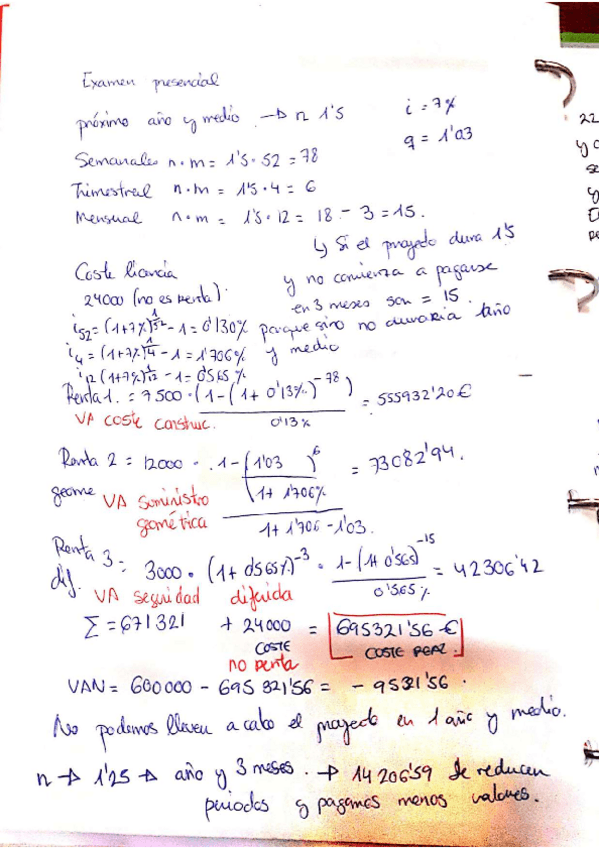 Examen presencial
próximo año y medio → n 1'5
i = 7%
q = 1'03
Semanales n·m = 1'5·52 = 78
Trimestral n·m = 1'5·4 = 6
Mensual n·m = 1'5·12 = 18 - 3 = 15.
↳ Si el proyecto dura 1'5
y no comienza a pagarse
en 3 meses son = 15.
porque sino no duraria 1año
y medio
Coste licencia
24000 (no es renta).
i52 = (1+7%)^1/52 - 1 = 0'130%
i4 = (1+7%)^1/4 - 1 = 1'706%
i12 (1+7%)^1/12 - 1 = 0'565%
Renta 1. = 7500 · (1 - (1 + 0'13%)^-78) / 0'13% = 555932'20€
VA coste construc.
Renta 2 = 12000 · 1 - (1'03 / 1 + 1'706%)^6 / 1 + 1'706 - 1'03. = 73082'94.
geome VA suministro
geomética
Renta 3 = 3000 · (1 + 0'565%)^-3 · 1 - (1+ 0'565)^-15 / 0'565% = 42306'42
dif. VA seguridad diferida
Σ = 671321 + 24000 = 695321'56 €
COSTE COSTE REAL
no renta
VAN = 600000 - 695321'56 = - 95321'56.
No podemos lleven a cabo el proyecto en 1 año y medio.
n → 1'25 → año y 3 meses. → 14206'59 Se reducen
periodos y pagamos menos valores.
22
y c